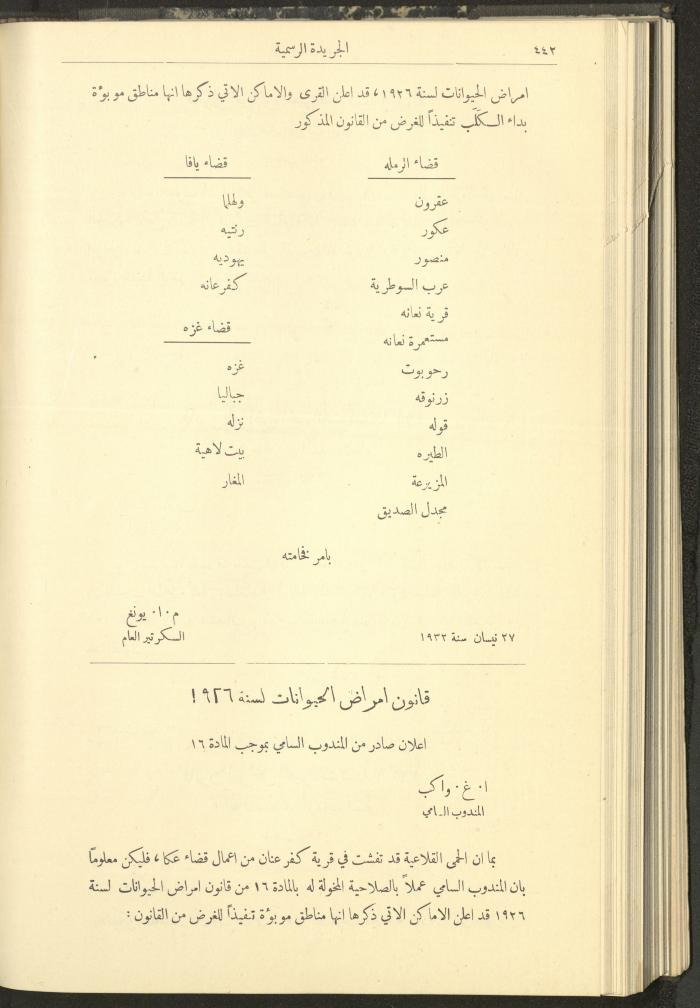 ٤٤٢
الجريدة الرسمية
امراض الحيوانات لسنة ١٩٢٦، قد اعلن القرى والاماكن الاتي ذكرها انها مناطق موبوءة
بداء الكلَب تنفيذاً للغرض من القانون المذكور
قضاء الرمله
عقرون
عكور
منصور
عرب السوطرية
قرية نعانه
مستعمرة نعانه
رحوبوت
زرنوقه
قوله
الطيره
المزيرعة
مجدل الصديق
قضاء يافا
ولهلما
رنتيه
يهوديه
كفرعانه
قضاء غزه
غزه
جباليا
نزله
بيت لاهية
المغار
بامر فخامته
م٠ا٠ يونغ
٢٧ نيسان سنة ١٩٣٢
السكرتير العام
قانون امراض الحيوانات لسنة ١٩٢٦
اعلان صادر من المندوب السامي بموجب المادة ١٦
ا٠ غ٠ واكب
المندوب السامي
بما ان الحمى القلاعية قد تفشت في قرية كفر عنان من اعمال قضاء عكا، فليكن معلوماً
بان المندوب السامي عملاً بالصلاحية المخولة له بالمادة ١٦ من قانون امراض الحيوانات لسنة
١٩٢٦ قد اعلن الاماكن الاتي ذكرها انها مناطق موبوءة تنفيذاً للغرض من القانون :